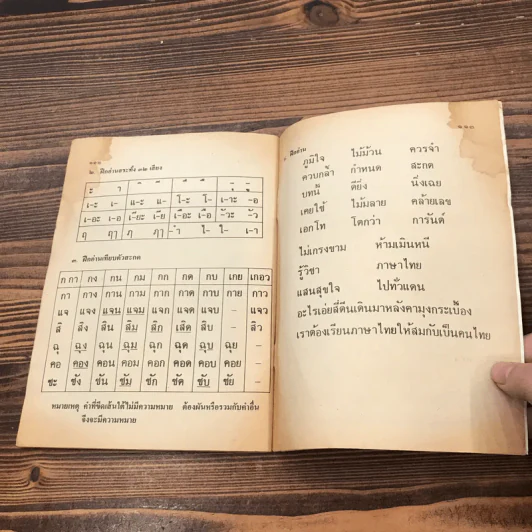 ๒. ฝึกอ่านสระทั้ง ๓๒ เสียง
เ-ะ เ- แ-ะ แ- โ-ะ โ- เ-าะ -อ
เ-อะ เ-อ เ-ียะ เ-ีย เ-ือะ เ-ือ -ัวะ -ัว
ฤ ฤๅ ฦ ฦๅ -ำ ไ- ใ- เ-า
๓. ฝึกอ่านเทียบตัวสะกด
ก กา กง กน กม กก กด กบ เกย เกอว
กา กาง กาน กาม กาก กาด กาบ กาย กาว
แจ แจง แจน แจม แจก แจด แจบ - แจว
ลิ ลิง ลิน ลิม ลิก ลิด ลิบ - ลิว
ฉุ ฉุง ฉุน ฉุม ฉุก ฉุด ฉุบ ฉุย -
คอ คอง คอน คอม คอก คอด คอบ คอย -
ชะ ชัง ชัน ชัม ชัก ชัด ชับ ชัย -
หมายเหตุ คำที่ขีดเส้นใต้ไม่มีความหมาย ต้องผันหรือรวมกับคำอื่น
จึงจะมีความหมาย
ฝึกอ่าน
ภูมิใจ ไม้ม้วน ควรจำ
ควบกล้ำ กำหนด สะกด
บทนี้ ดียิ่ง นิ่งเฉย
เคยใช้ ไม้มลาย คล้ายเลข
เอกโท โตกว่า การันต์
ไม่เกรงขาม ห้ามเมินหนี
รู้วิชา ภาษาไทย
แสนสุขใจ ไปทั่วแดน
อะไรเอ่ยสี่ตีนเดินมาหลังคามุงกระเบื้อง
เราต้องเรียนภาษาไทยให้สมกับเป็นคนไทย